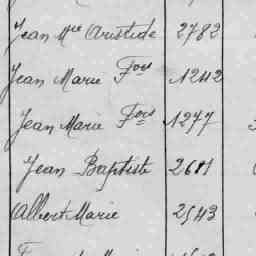 Jean Mie Aristide 2782
Jean Marie Fois 1242
Jean Marie Fois 1247
Jean Baptiste 2611
Albert Marie 2543